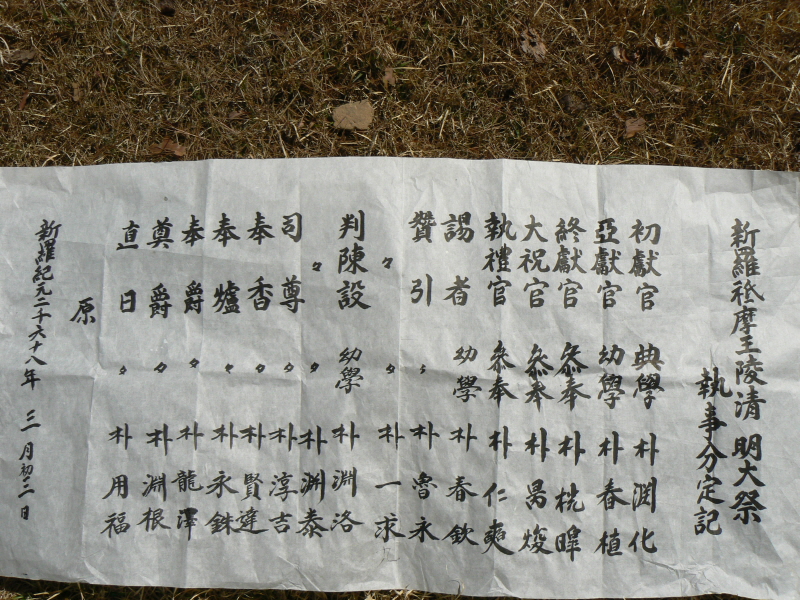 新羅祗摩王陵清明大祭
執事分定記
初獻官 典學 朴潤化
亞獻官 幼學 朴春植
終獻官 叅奉 朴桄暭
大祝官 叅奉 朴昺焌
執禮官 叅奉 朴仁奭
謁者 幼學 朴春欽
贊引 〃 朴魯永
〃 〃 朴一求
判陳設 幼學 朴淵洛
〃 〃 朴淵泰
司尊 〃 朴淳吉
奉香 〃 朴賢達
奉爐 〃 朴永銖
奉爵 〃 朴龍澤
奠爵 〃 朴淵根
直日 〃 朴用福
原
新羅紀元二千六十八年 三月初三日